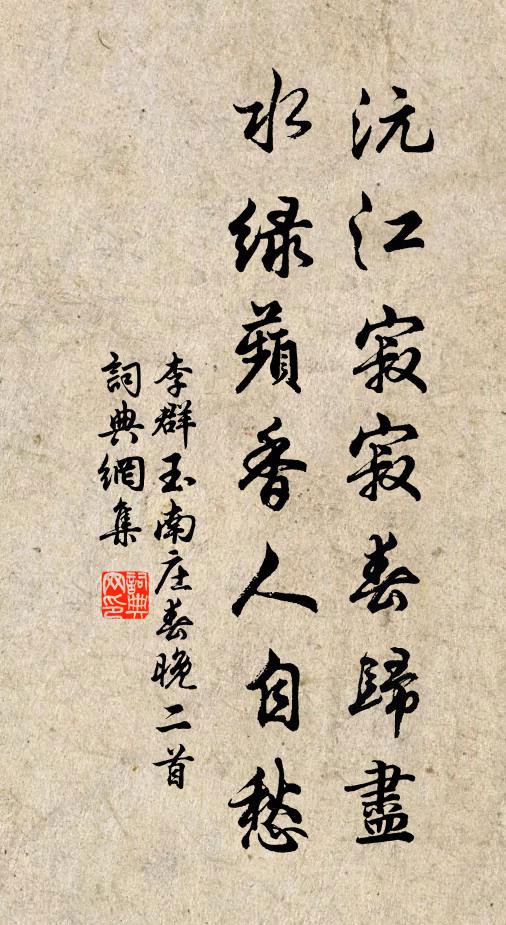 沅江寂寂春歸盡
水緑蘋香人自愁
李群玉南庄春晚二首
詞典網集
詞典
网印